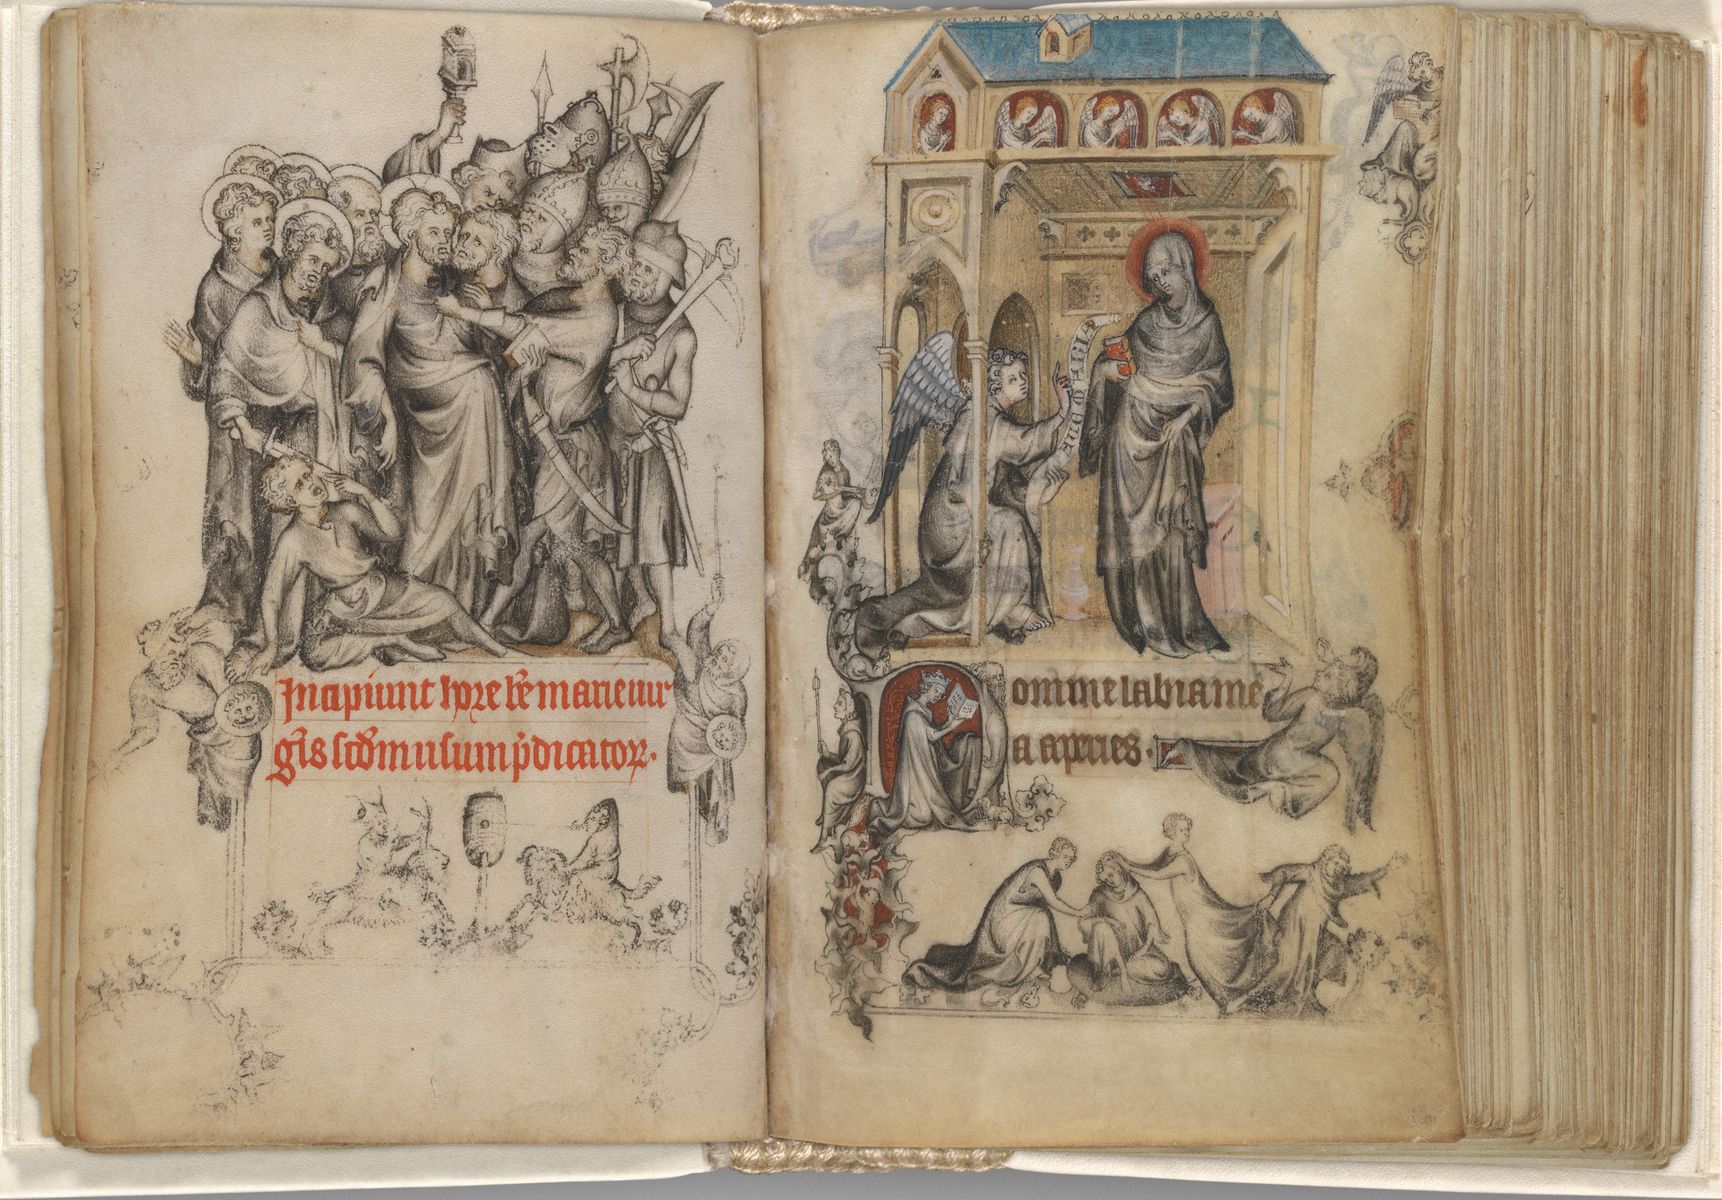 Incipiunt hore be marie uir
gis scdm usum pdicator.
aue maria
Domine labia me
a aperies.